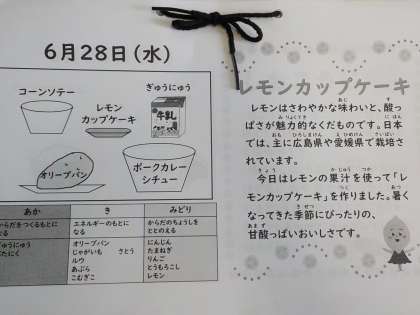 6月28日（水）
コーンソテー
レモン
カップケーキ
ぎゅうにゅう
牛乳
オリーブパン
ポークカレー
シチュー
あか
き
みどり
からだをつくるもとに
なる
エネルギーのもとに
なる
からだのちょうしを
ととのえる
ぎゅうにゅう
ぶたにく
オリーブパン
じゃがいも さとう
ルウ
あぶら
こむぎこ
にんじん
たまねぎ
りんご
とうもろこし
レモン
レモンカップケーキ
レモンはさわやかな味わいと、酸っ
ぱさが魅力的なくだものです。日本
では、主に広島県や愛媛県で栽培さ
れています。
今日はレモンの果汁を使って「レ
モンカップケーキ」を作りました。暑く
なってきた季節にぴったりの、
甘酸っぱいおいしさです。